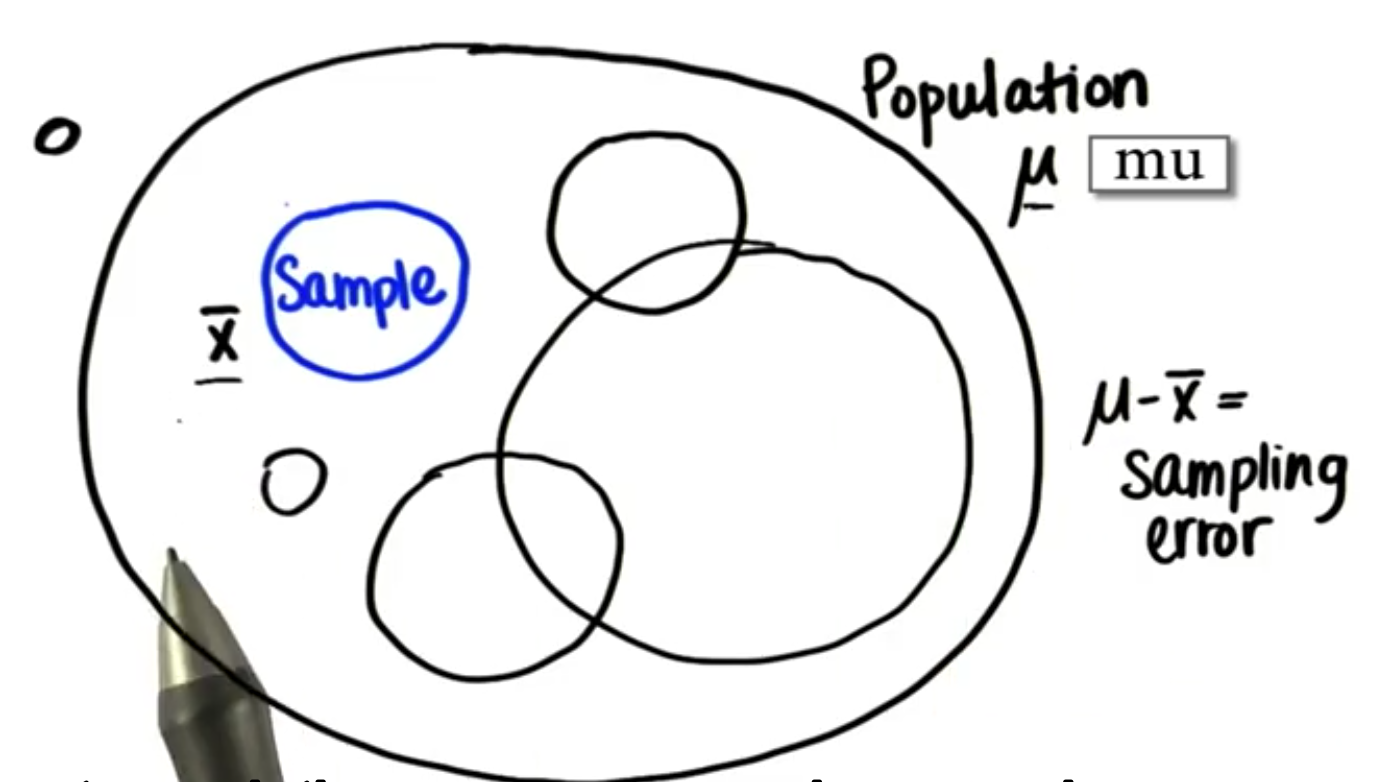 Population
μ mu
Sample
x̄
μ - x̄ =
sampling
error